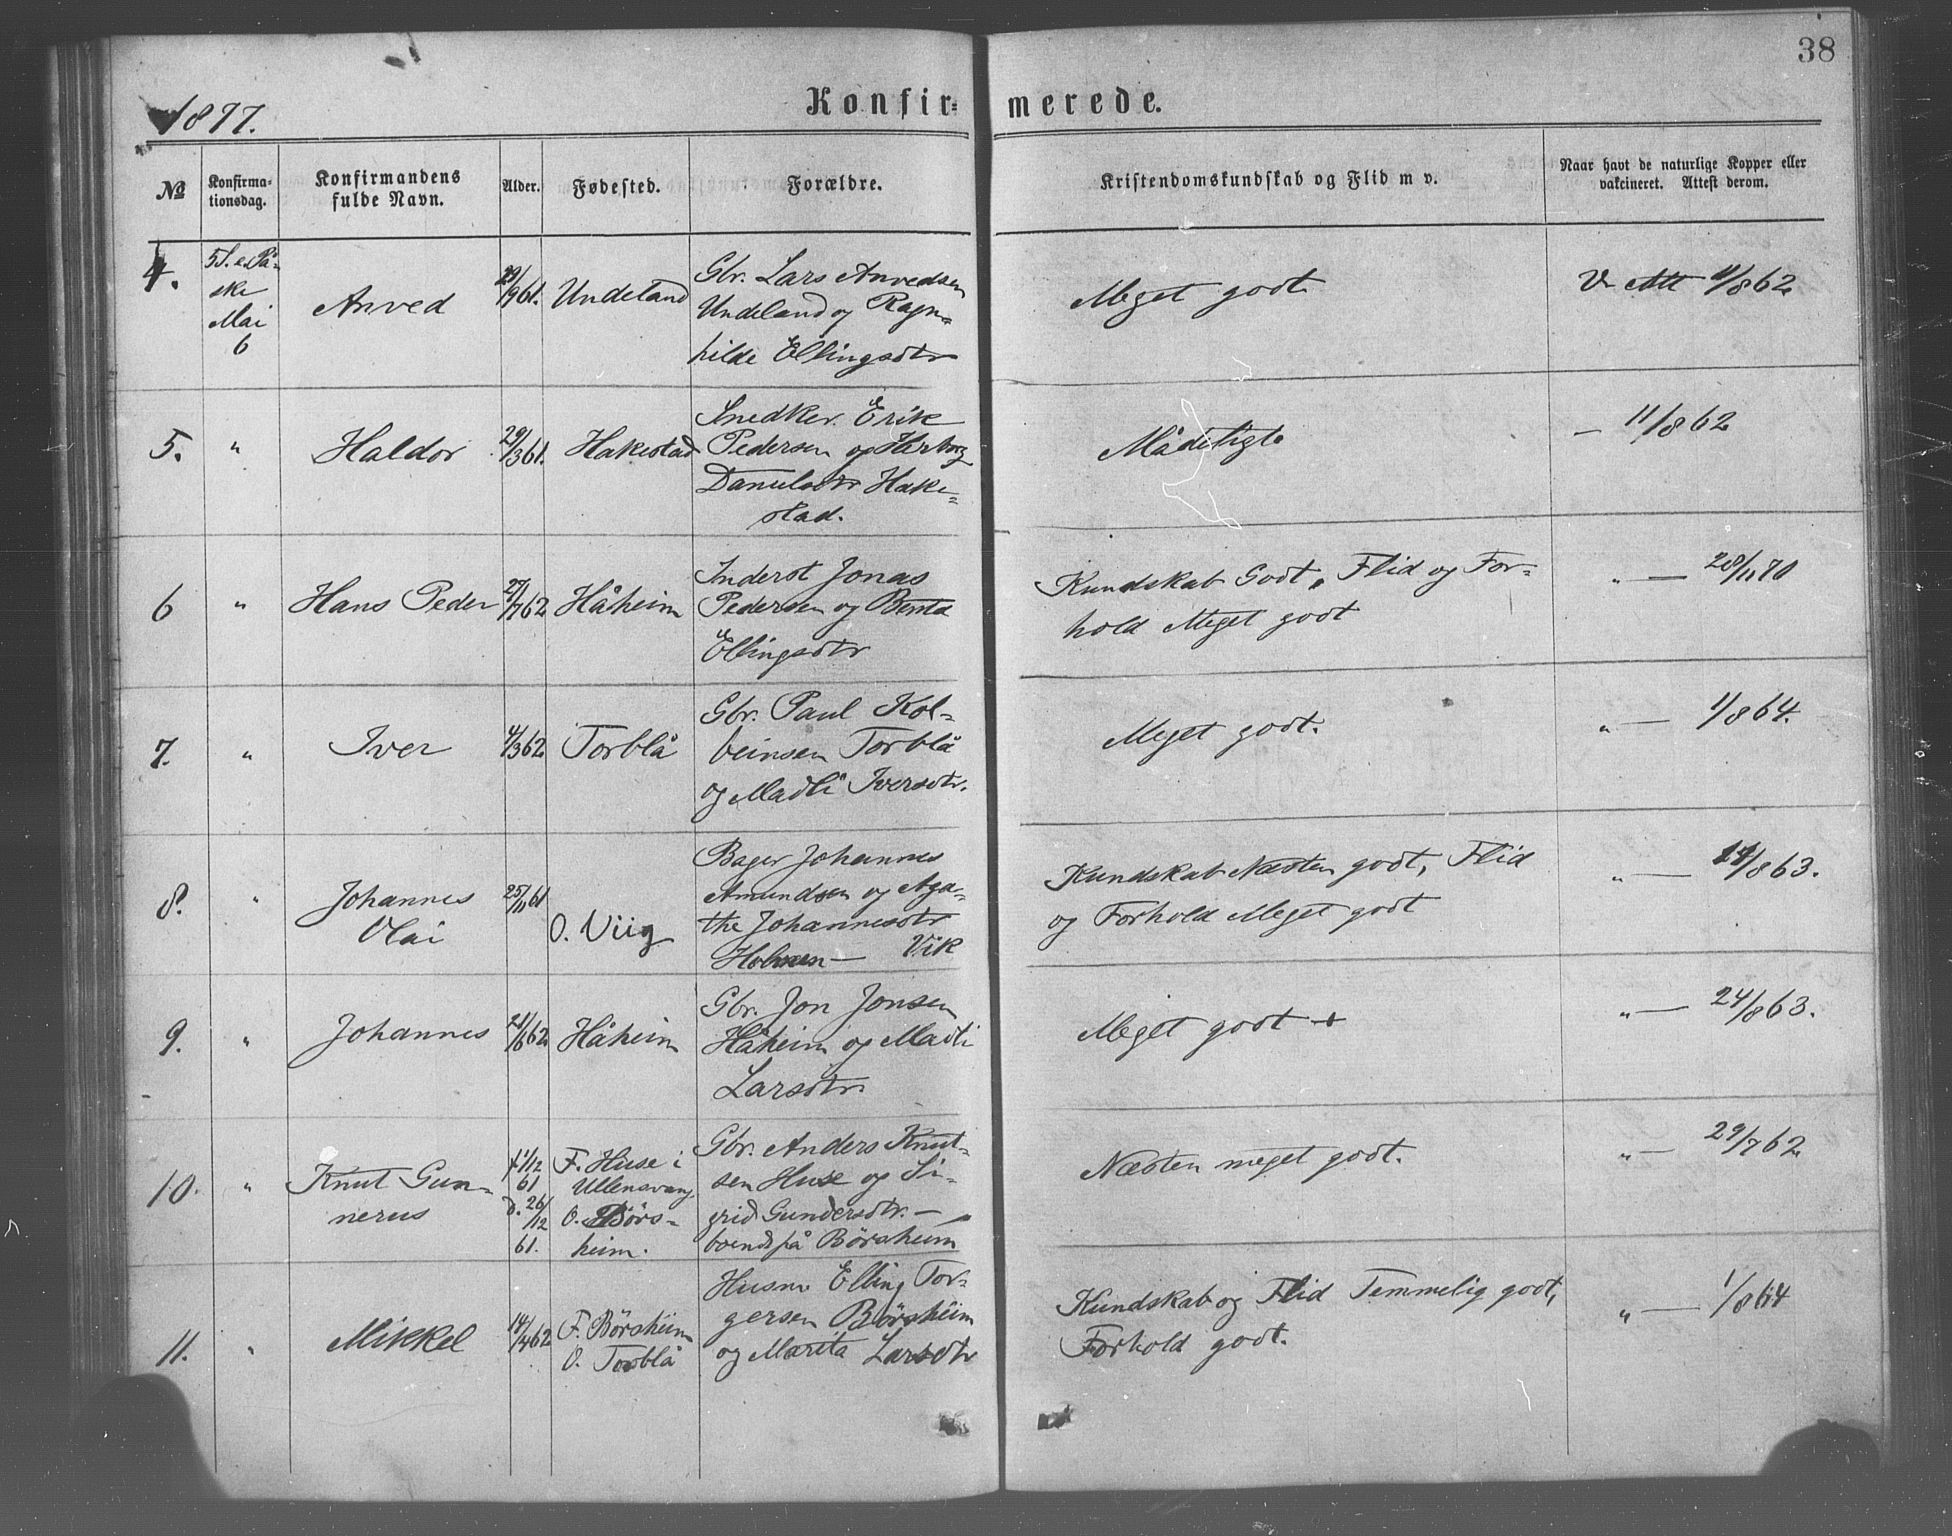 38
1877.
Konfir- merede.
№
Konfirma-
tionsdag.
Konfirmandens
fulde Navn.
Alder.
Fødested.
Forældre.
Kristendomskundskab og Flid m v.
Naar havt de naturlige Kopper eller
vakcineret. Attest derom.
4.
5 S. e. På-
ske
Mai
6
Anved
/9 61.
Undeland
Gbr. Lars Anvedsen
Undeland og Ragn-
hilde Ellingsdtr
Meget godt
V Att 11/8 62
5.
"
Haldor
29/3 61.
Hakestad
Snedker Erik
Pedersen og Herborg
Danielsdtr Hake-
stad.
Mådeligt
— 11/8 62
6
"
Hans Peder
27/7 62
Håheim
Inderst Jonas
Pedersen og Benta
Ellingsdtr
Kundskab Godt, Flid og For-
hold Meget godt
" — 28/11 70
7.
"
Iver
4/3 62
Torblå
Gbr. Paul Kol-
beinsen Torblå
og Madli Iversdtr.
Meget godt.
" — 1/8 64.
8.
"
Johannes
Olai
25/11 61
O. Viig
Bager Johannes
Amundsen og Aga-
the Johannesdtr
Holmen — Vik
Kundskab Næsten godt, Flid
og Forhold Meget godt
" — /8 63.
9.
"
Johannes
21/6 62
Håheim
Gbr. Jon Jonsen
Håheim og Madli
Larsdtr.
Meget godt +
" — 24/8 63.
10.
"
Knut Gun-
nerus
/12
61
d. 26/12
61.
F. Huse i
Ullensvang
O. Børs-
heim.
Gbr. Anders Knut-
sen Huse og Si-
grid Gundersdtr. —
boende på Børsheim
Næsten meget godt.
" — 29/7 62
11.
"
Mikkel
14/4 62
F. Børsheim
O. Torblå
Husm. Elling Tor-
gersen Børsheim
og Marita Larsdtr
Kundskab og Flid Temmelig godt,
Forhold godt.
" — 1/8 64